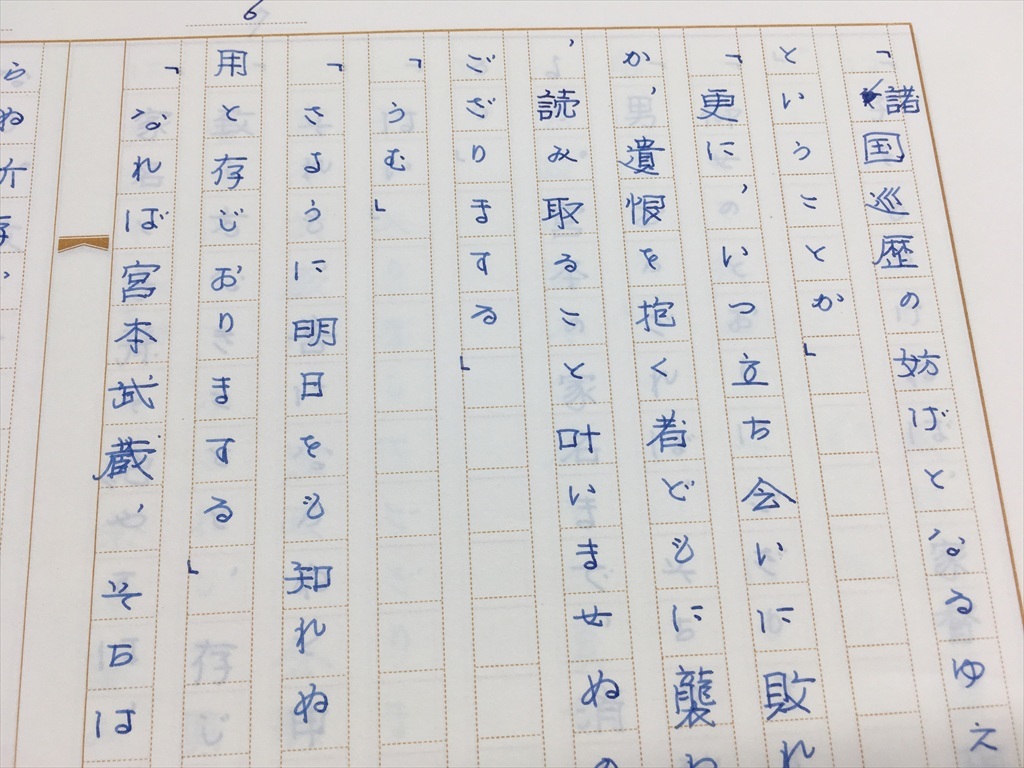 6
「諸国巡歴の妨げとなるゆえ
ということか」
「更に、いつ立ち会いに敗れ
か、遺恨を抱く者どもに襲わ
、読み取ること叶いませぬの
ござりまする」
「うむ」
「さように明日をも知れぬ
用と存じおりまする」
「なれば宮本武蔵、そち は
らぬ介存、